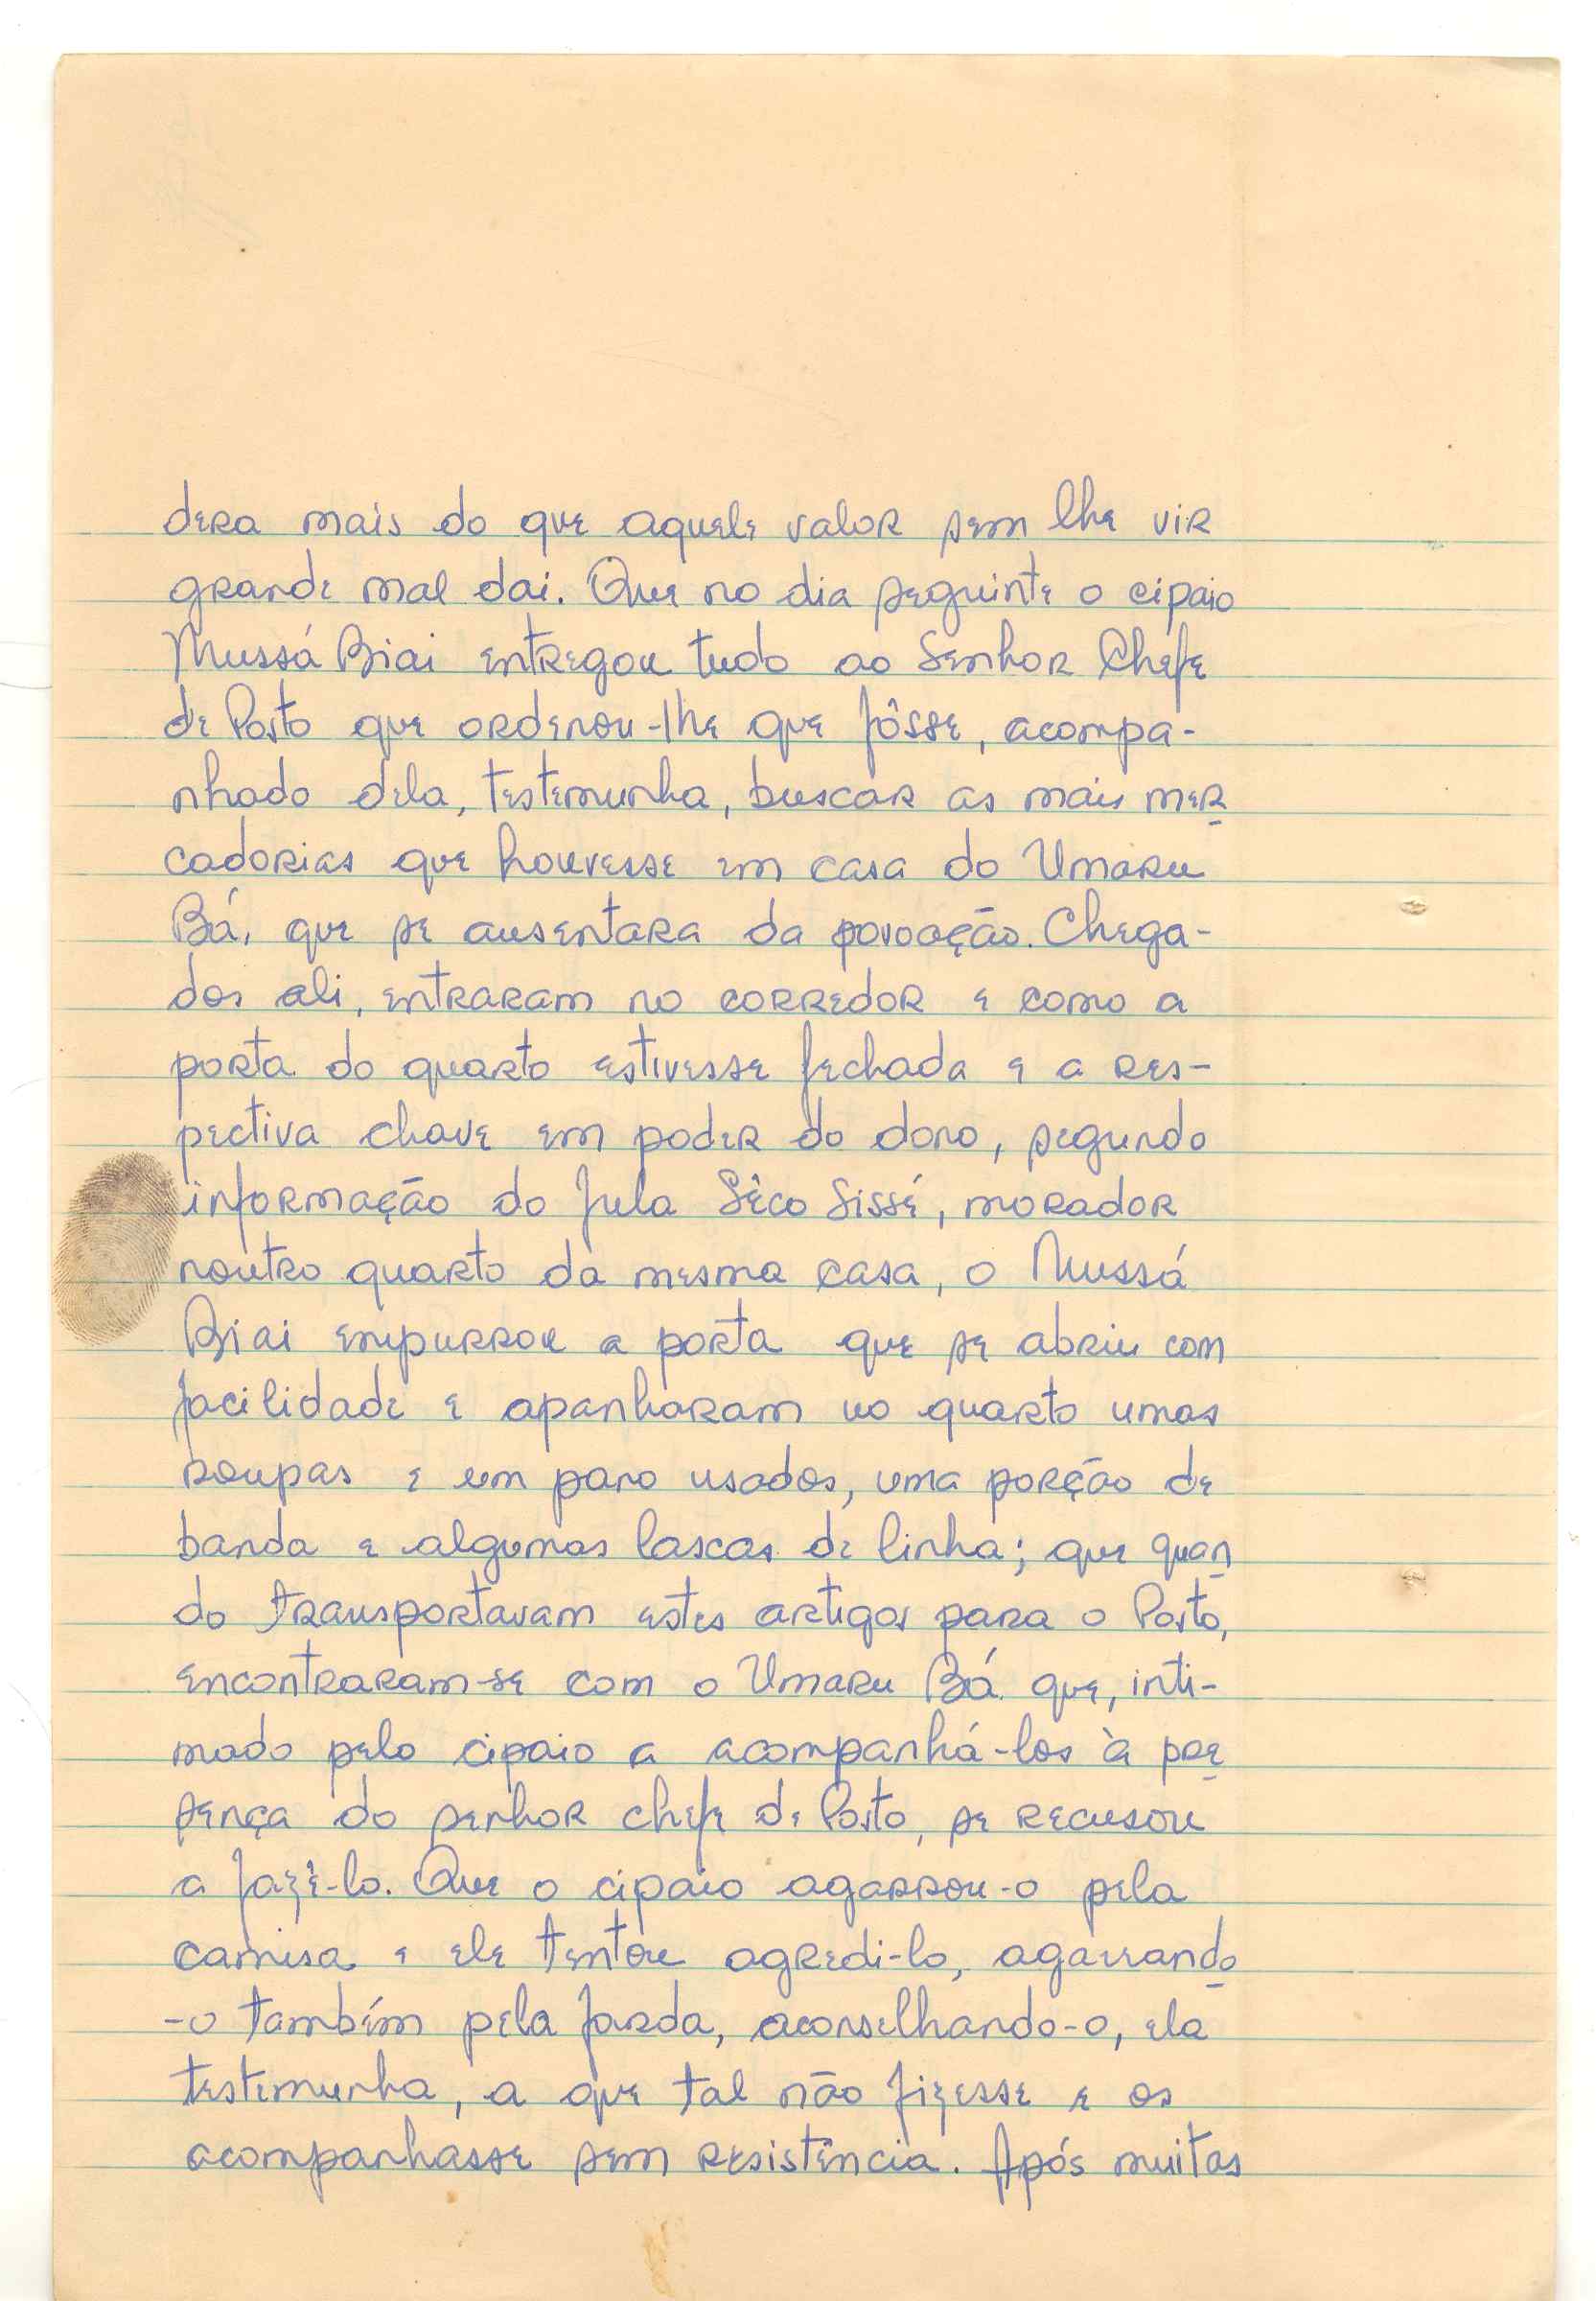 dera mais do que aquele valor sem lhe vir
grande mal dai. Que no dia seguinte o cipaio
Mussá Biai entregou tudo ao Senhor Chefe
de Posto que ordenou-lhe que fôsse, acompa-
nhado dela, testemunha, buscar as mais mer
cadorias que houvesse em casa do Umaru
Bá, que se ausentara da povoação. Chega-
dos ali, entraram no corredor e como a
porta do quarto estivesse fechada e a res-
pectiva chave em poder do dono, segundo
informação do fula Sêco Sissé, morador
noutro quarto da mesma casa, o Mussá
Biai empurrou a porta que se abriu com
facilidade e apanharam no quarto umas
roupas e um pano usados, uma porção de
banda e algumas lascas de linha; que quan
do transportavam estes artigos para o Posto,
encontraram-se com o Umaru Bá que, inti-
mado pelo cipaio a acompanhá-los à pre
sença do senhor chefe de Posto, se recusou
a fazê-lo. Que o cipaio agarrou-o pela
camisa e ele tentou agredi-lo, agarrando
-o também pela farda, aconselhando-o, ela
testemunha, a que tal não fizesse e os
acompanhasse sem resistência. Após muitas